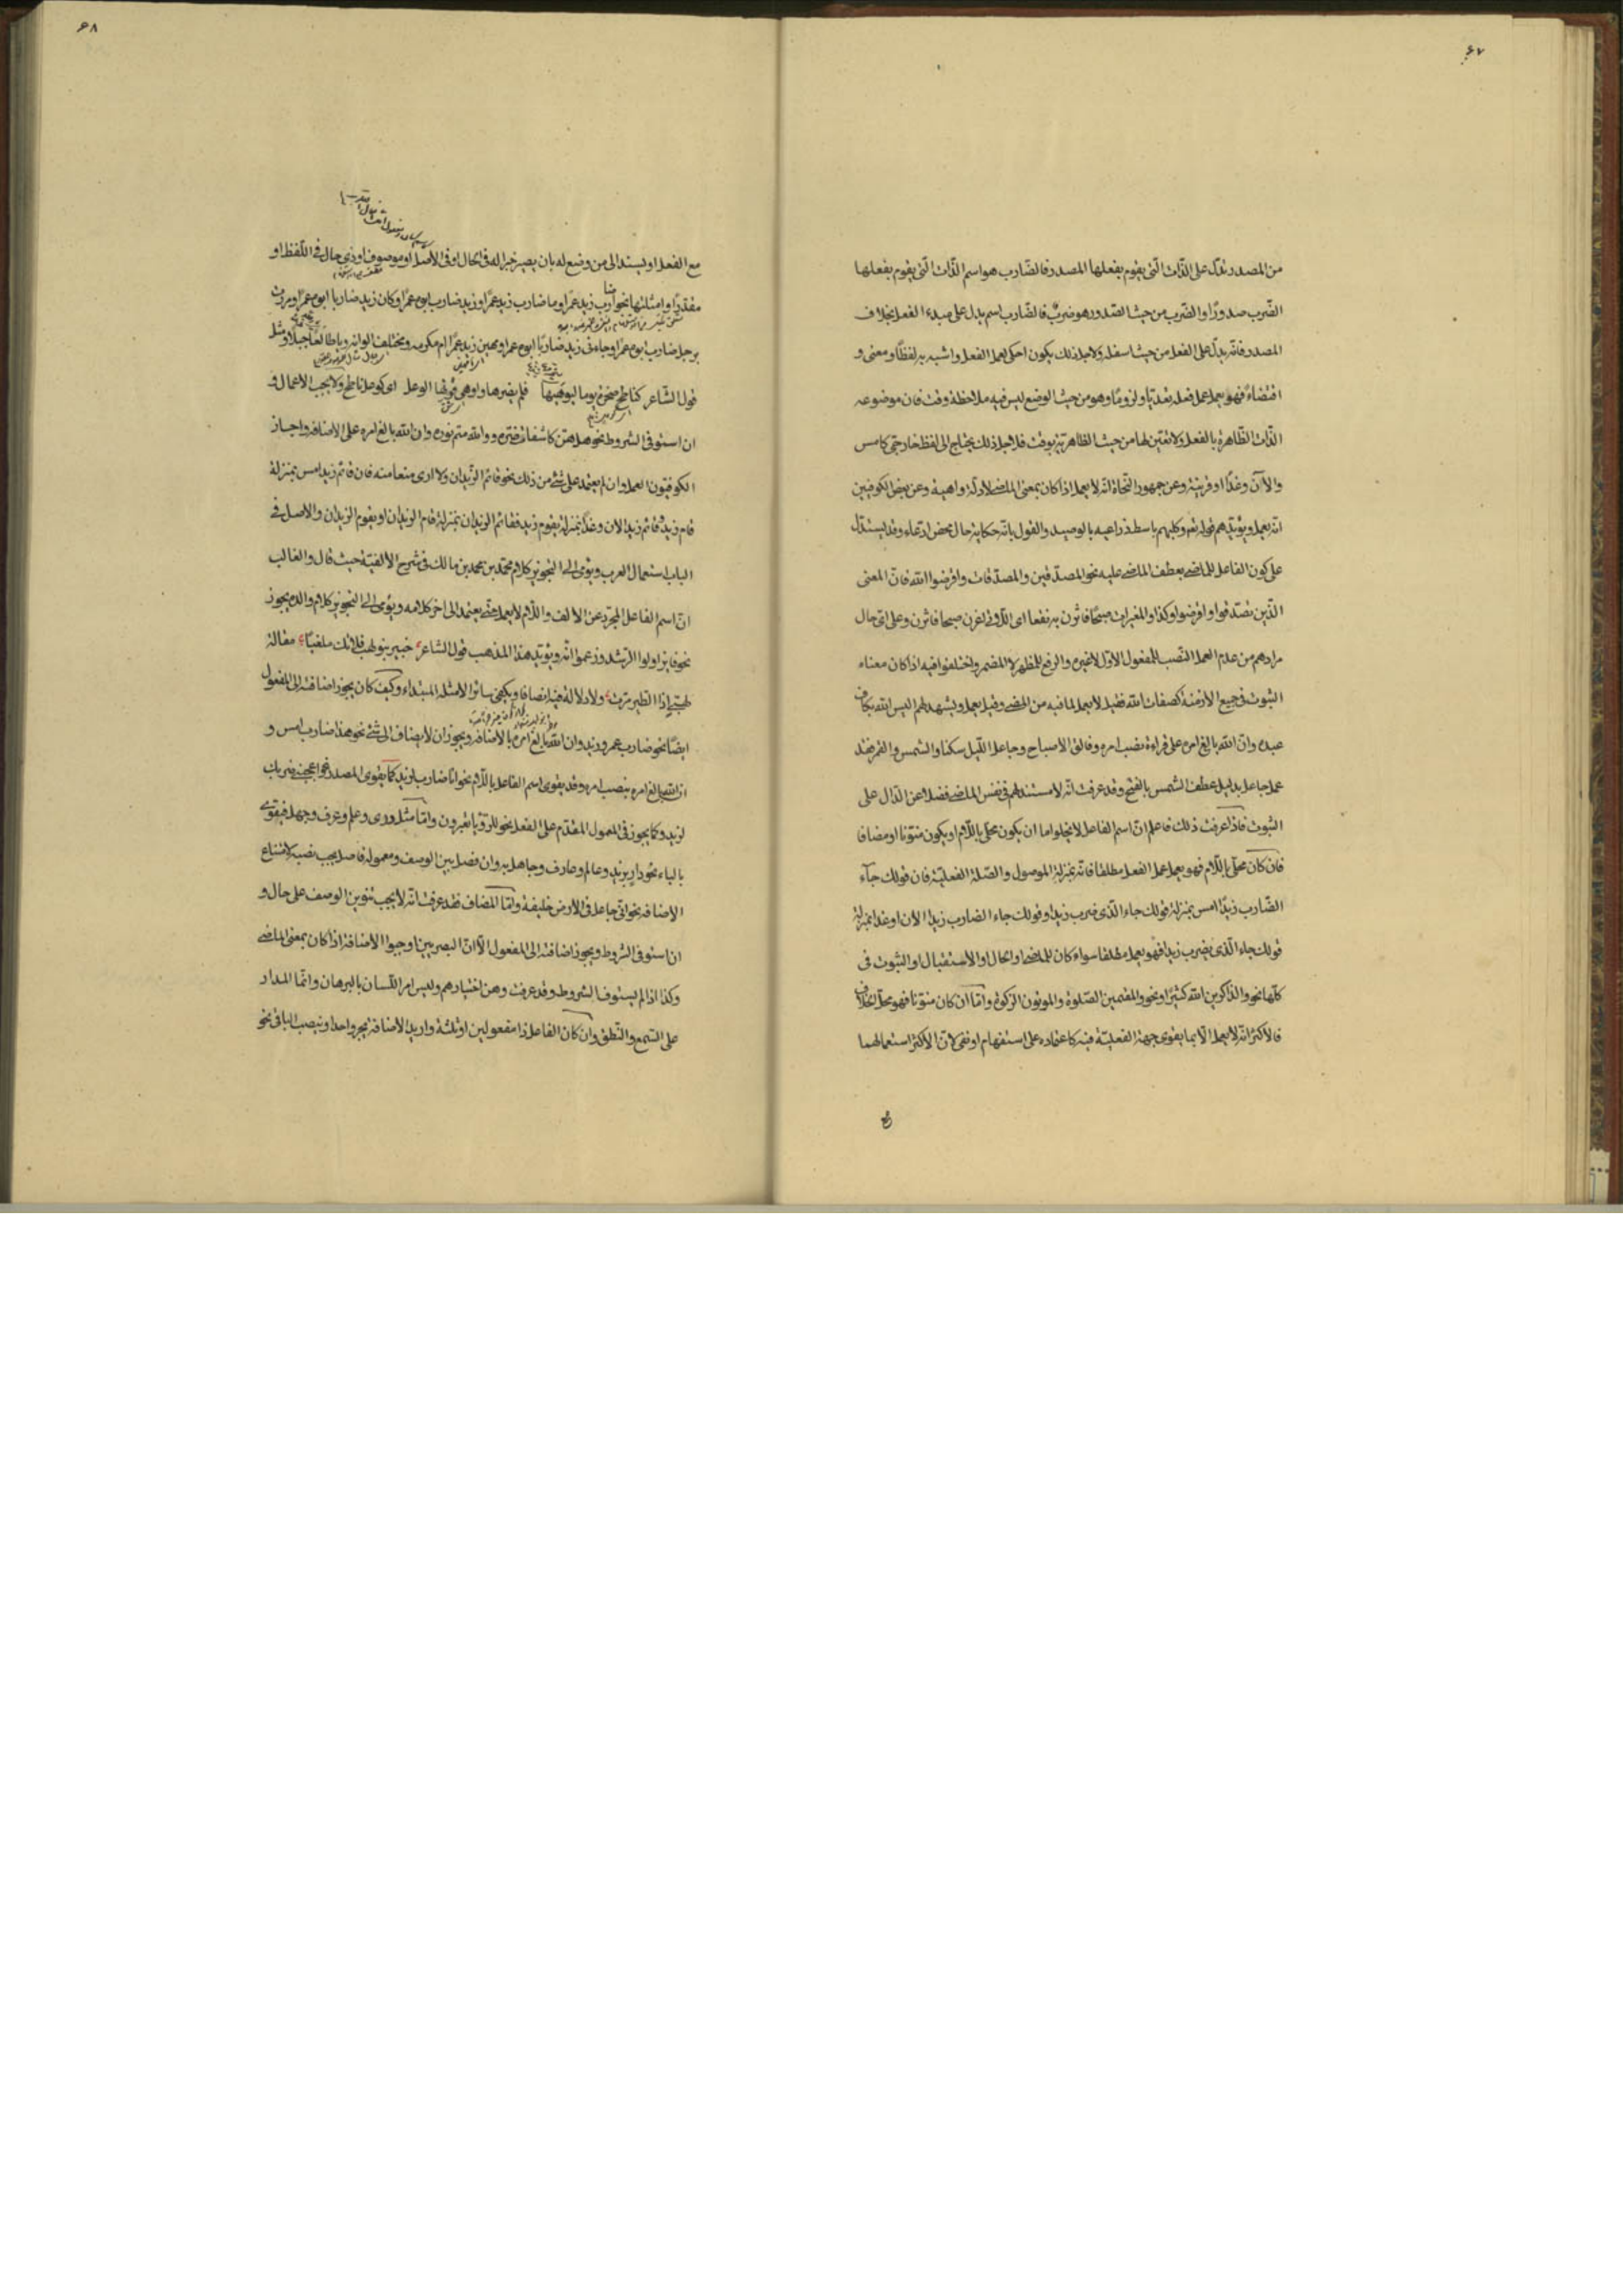 ۶۷
من المصدر تدل على الذات التي يقوم بفعلها المصدر فالضارب هو اسم الذات التي يقوم بفعلها
الضرب صدورًا والضرب من حيث الصدور هو ضربٌ فالضارب اسم يدل على مبدء الفعل بخلاف
المصدر فانه يدل على الفعل من حيث اسفله ولاجل ذلك يكون احكى لعمل الفعل واشبه به لفظًا ومعنى و
اقتضاءً فهو يعمل عمل فعله تعديًا ولزومًا وهو من حيث الوضع ليس فيه ملاحظة وقت فان موضوعه
الذات الظاهرة بالفعل ولا تعين لها من حيث الظاهرية بوقت فلاجل ذلك يحتاج الى لفظ خارجي كامس
والآن وغدًا او قرينة وعن جمهور النحاة انه لا يعمل اذا كان بمعنى الماضي لادلة واهية وعن بعض الكوفيين
انه يعمل ويؤيدهم قوله تعم وكلبهم باسط ذراعيه بالوصيد والقول بانه حكاية حال محض ادعاء وقد يستدل
على كون الفاعل للماضي بعطف الماضي عليه نحو المصدقين والمصدقات واقرضوا الله فان المعنى
الذين تصدقوا واقرضوا وكذا والمغيرات صبحًا فاثرن به نقعا اى اللاتى اغرن صبحا فاثرن وعلى اى حال
مرادهم من عدم العمل النصب للمفعول الاول لا غيره والرفع للمظهر لا المضمر واختلفوا فيه اذا كان معناه
الثبوت في جميع الازمنة كصفات الله فقيل لا يعمل لما فيه من المضي وقيل يعمل ويشهد لهم اليس الله بكاف
عبده وان الله بالغ امره على قراءة نصب امره وفالق الاصباح وجاعل الليل سكنا والشمس والقمر فقد
عمل جاعل بدليل عطف الشمس بالفتح وقد عرفت انه لا مستند لهم في نفس الماضي فضلا عن الدال على
الثبوت فاذا عرفت ذلك فاعلم ان اسم الفاعل لا يخلو اما ان يكون محلى باللام او يكون منونا او مضافا
فان كان محلى باللام فهو يعمل عمل الفعل مطلقا فانه بمنزلة الموصول والصلة الفعلية فان قولك جآء
الضارب زيدًا امس بمنزلة قولك جاء الذى ضرب زيدا وقولك جاء الضارب زيدا الآن او غدا بمنزلة
قولك جاء الذى يضرب زيدا فهو يعمل مطلقا سواء كان للماضي او الحال او الاستقبال او الثبوت فى
كلها نحو والذاكرين الله كثيرًا ونحو والمقيمين الصلوة والموتون الزكوة واما ان كان منونا فهو محل الخلاف
فالاكثر انه لا يعمل الا بما يقوى جهة الفعلية فيه كاعتماده على استفهام او نفى لان الاكثر استعمالهما
۶۸
مع الفعل او ليسند الى من وضع له بان يصير خبرا له فى الحال او فى الاصل او موصوف او ذى حال فى اللفظ او
مقدرًا وامثلتها نحو اضارب زيد عمرًا وما ضارب زيد عمرًا وزيد ضارب ابوه عمرًا وكان زيد ضاربا ابوه عمرًا ومررت
برجل ضارب ابوه عمرًا وجاءنى زيد ضاربًا ابوه عمرا ومهين زيد عمرًا ام مكرمه ومختلف الوانه ويا طالعًا جبلًا ومثل
قول الشاعر كناطح صخرة يوما ليوهنها فلم يضرها واوهى قرنه الوعل اى كوعل ناطح ولا يجب الاعمال و
ان استوفى الشروط نحو هل هن كاشفات ضره ووالله متم نوره وان الله بالغ امره على الاضافة واجاز
الكوفيون العمل وان لم يعتمد على شئ من ذلك نحو قائم الزيدان ولا ارى منعا منه فان قائم زيد امس بمنزلة
قام زيد وقائم زيد الان وغدًا بمنزلة يقوم زيد فقائم الزيدان بمنزلة قام الزيدان او يقوم الزيدان والاصل فى
الباب استعمال العرب ويؤمى الى التجويز كلام محمد بن محمد بن مالك فى شرح الالفية حيث قال والغالب
ان اسم الفاعل المجرد عن الالف واللام لا يعمل حتى يعتمد الى اخر كلامه ويؤمى الى التجويز كلام والده يجوز
نحو فايز اولوا الرشد وزعموا انه ويؤيد هذا المذهب قول الشاعر خبير بنو لهب فلا تك ملغيًا مقالة
لهبي اذا الطير مرت ولا دلالة فيه انصافا ويكفى سائر الامثلة المبتداء وكيف كان يجوز اضافته الى المفعول
ايضًا نحو ضارب عمرو زيد وان الله بالغ امره بالاضافة ويجوز ان لا يضاف الى شئ نحو هذا ضارب امس و
ان الله بالغ امره بنصب امره وقد يقوى اسم الفاعل باللام نحو انا ضارب لزيد كما يقوى المصدر نحو اعجبنى ضربك
لزيد وكما يجوز فى المعمول المقدم على الفعل نحو للرؤيا تعبرون واما مثل درى وعلم وعرف وجهل فيقوى
بالباء نحو دارٍ بزيد وعالم وعارف وجاهل به وان فصل بين الوصف ومعموله فاصل يجب نصبه لامتناع
الاضافة نحو انى جاعل فى الارض خليفة واما المضاف فقد عرفت انه لا يجب تنوين الوصف على حال و
ان استوفى الشروط ويجوز اضافته الى المفعول الا ان البصريين اوجبوا الاضافة اذا كان بمعنى الماضي
وكذا اذا لم يستوف الشروط وقد عرفت وهن اختيارهم وليس امر اللسان بالبرهان وانما المدار
على السمع والنطق وان كان الفاعل ذا مفعولين او ثلثة واريد الاضافة يجر واحد او ينصب الباقى نحو